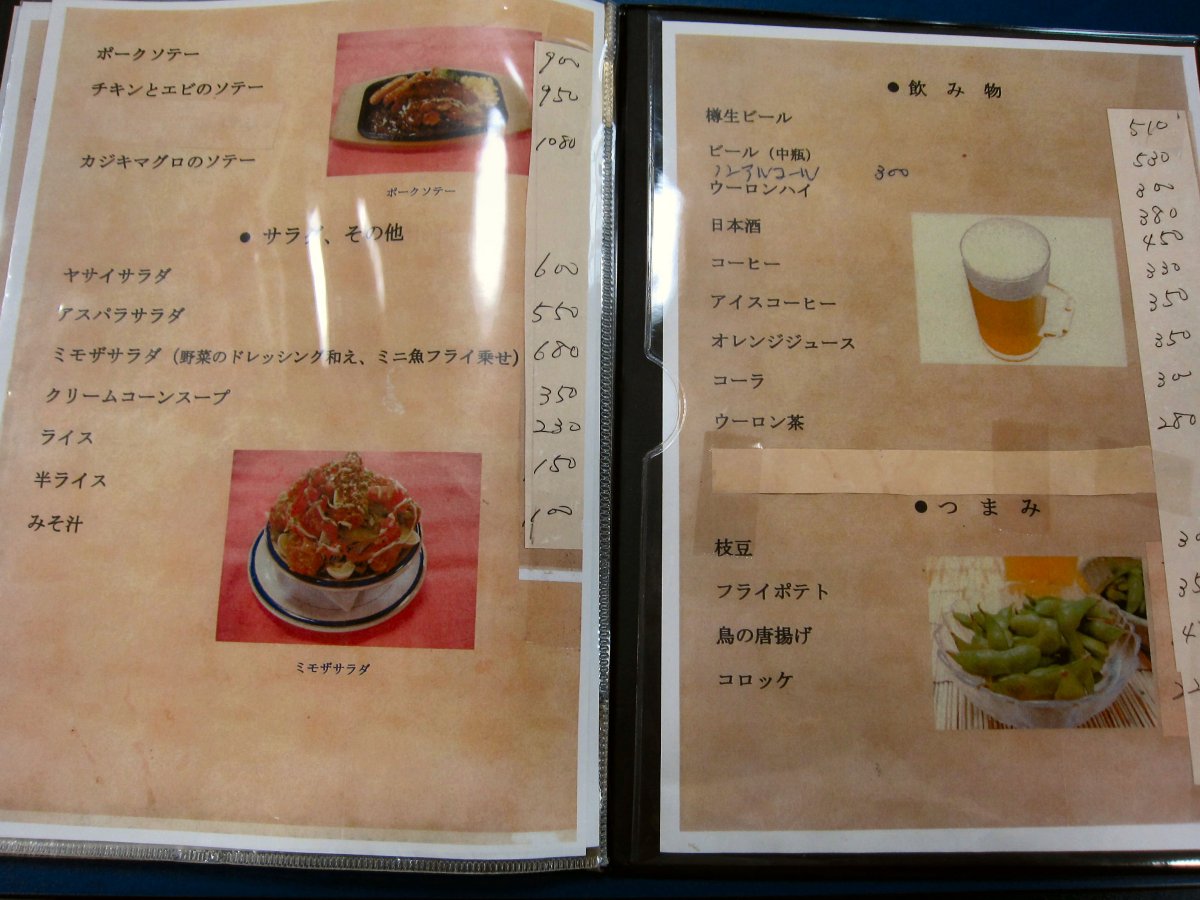 ポークソテー 900
チキンとエビのソテー 950
カジキマグロのソテー 1080
ポークソテー
● サラダ、その他
ヤサイサラダ 600
アスパラサラダ 550
ミモザサラダ（野菜のドレッシング和え、ミニ魚フライ乗せ） 680
クリームコーンスープ 350
ライス 230
半ライス 150
みそ汁 100
ミモザサラダ
● 飲み物
樽生ビール 510
ビール（中瓶） 530
ノンアルコール 300 300
ウーロンハイ 380
日本酒 450
コーヒー 330
アイスコーヒー 350
オレンジジュース 350
コーラ
ウーロン茶 280
● つまみ
枝豆
フライポテト
鳥の唐揚げ
コロッケ